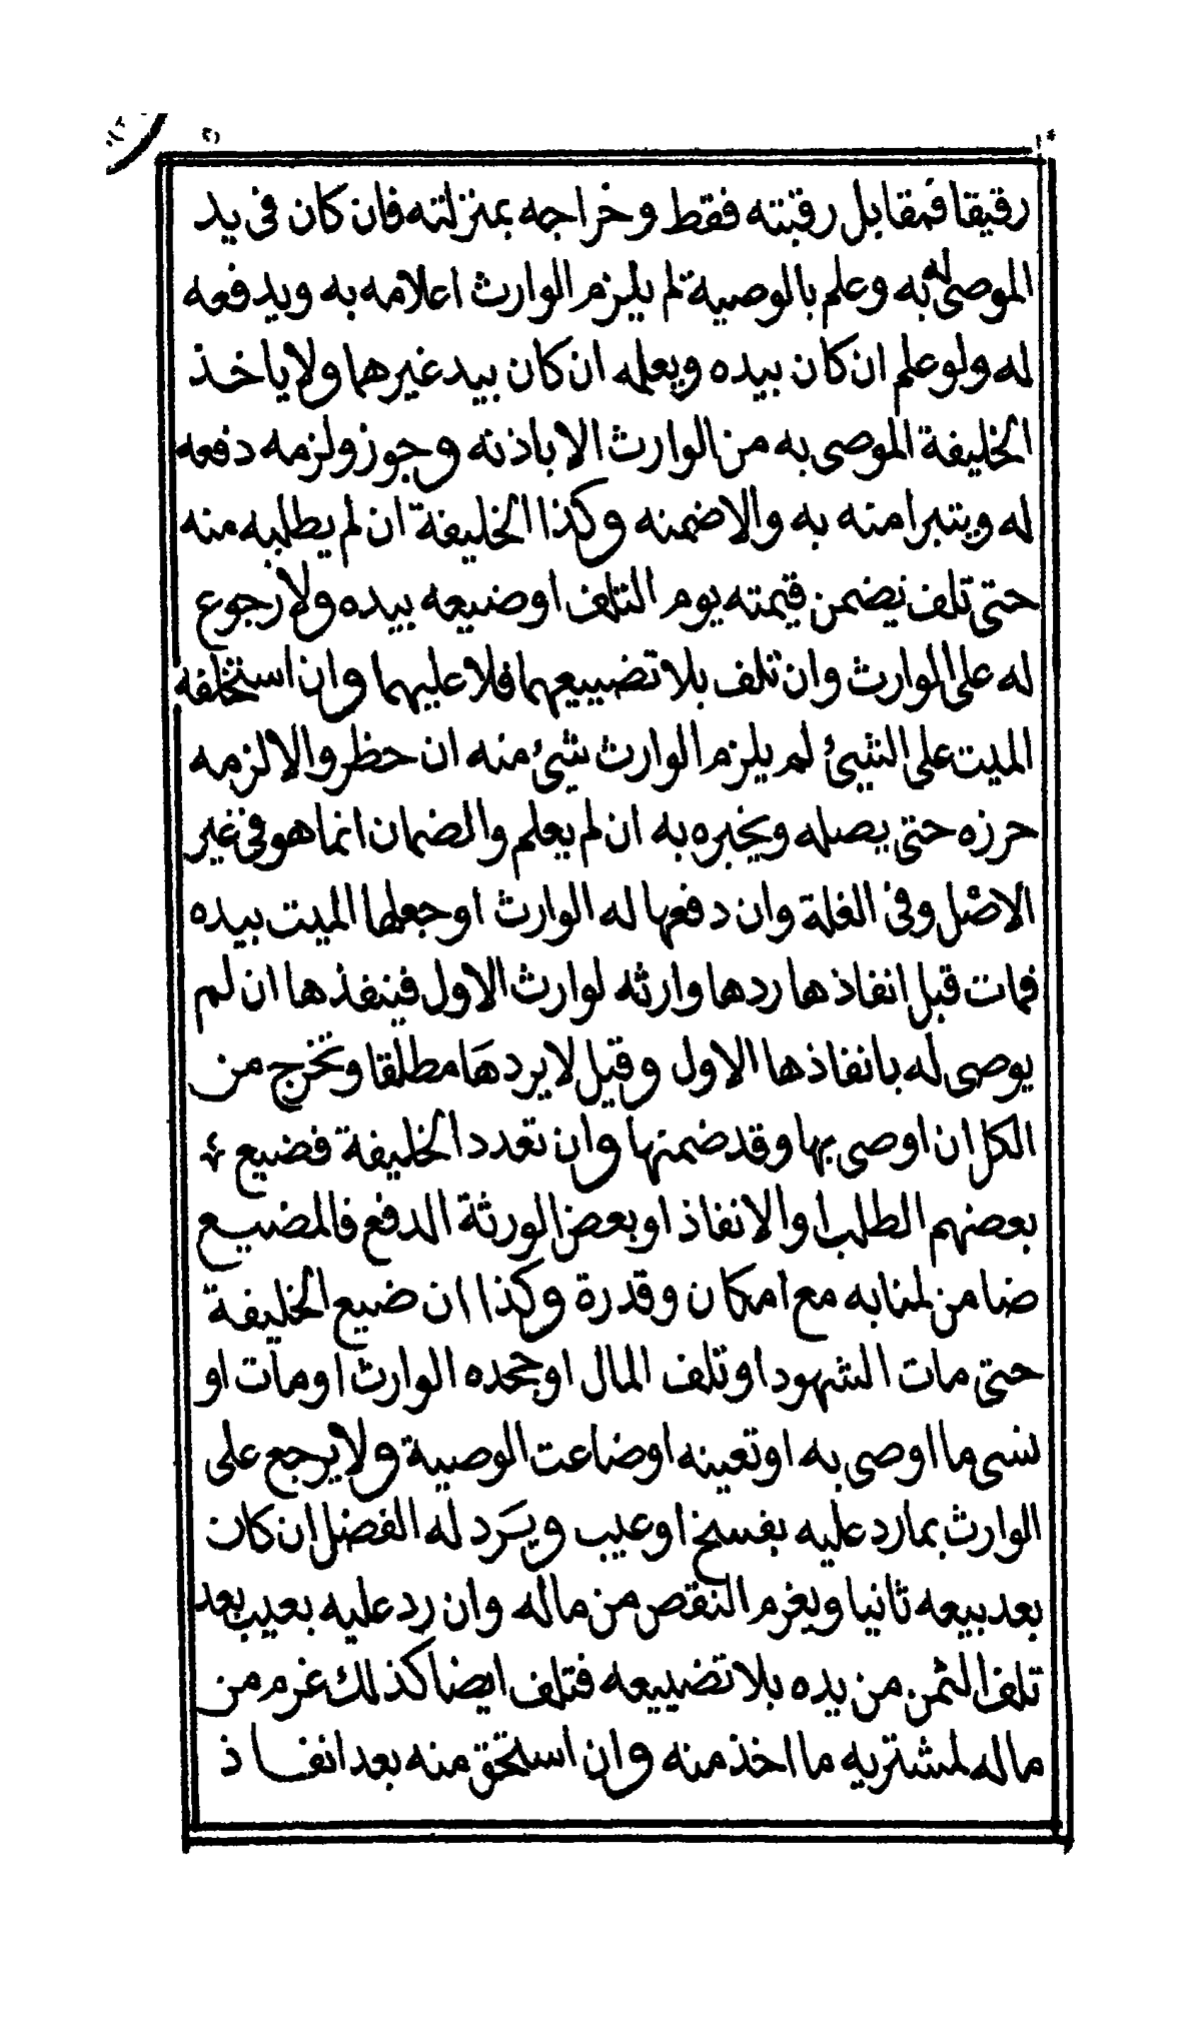 رقيقا فمقابل رقبته فقط وخراجه بمنزلته فان كان فى يد
الموصى له به وعلم بالوصية لم يلزم الوارث اعلامه به ويدفعه
له ولو علم ان كان بيده ويعلمه ان كان بيد غيرهما ولا ياخذ
الخليفة الموصى به من الوارث الا باذنه وجوز ولزمه دفعه
له ويتبرا منه به والا ضمنه وكذا الخليفة ان لم يطلبه منه
حتى تلف يضمن قيمته يوم التلف او ضيعه بيده ولا رجوع
له على الوارث وان تلف بلا تضييعهما فلا عليهما وان استخلفه
الميت على الشيئ لم يلزم الوارث شيئ منه ان حظر والا لزمه
حرزه حتى يصله ويخبره به ان لم يعلم والضمان انما هو فى غير
الاصل وفى الغلة وان دفعها له الوارث او جعلها الميت بيده
فمات قبل انفاذها ردها وارثه لوارث الاول فينفذها ان لم
يوصى له بانفاذها الاول وقيل لا يردها مطلقا وتخرج من
الكل ان اوصى بها وقد ضمنها وان تعدد الخليفة فضيع
بعضهم الطلب او الانفاذ او بعض الورثة الدفع فالمضيع
ضامن لمنابه مع امكان وقدرة وكذا ان ضيع الخليفة
حتى مات الشهود او تلف المال او جحده الوارث او مات او
نسى ما اوصى به او تعينه او ضاعت الوصية ولا يرجع على
الوارث بما رد عليه بفسخ او عيب ويَرد له الفضل ان كان
بعد بيعه ثانيا ويغرم النقص من ماله وان رد عليه بعيب بعد
تلف الثمن من يده بلا تضييعه فتلف ايضا كذلك غرم من
ماله لمشتريه ما اخذ منه وان استحق منه بعد انفاذ